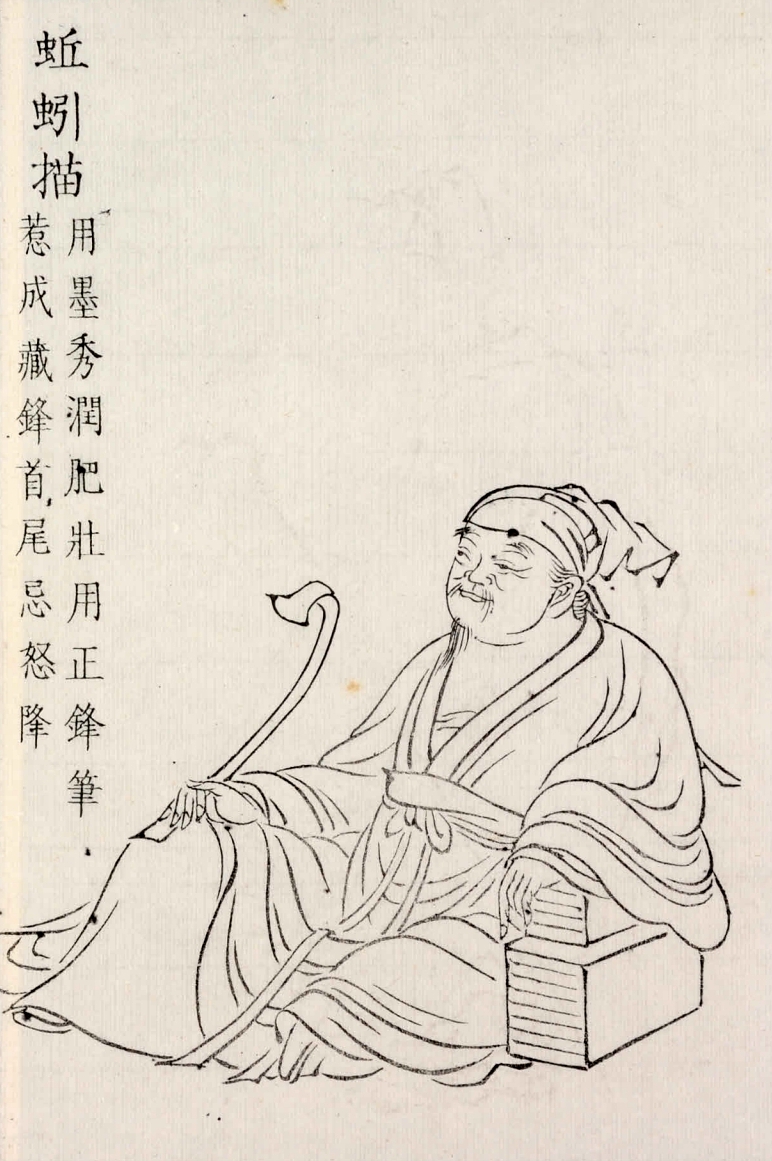 蚯蚓描
用墨秀潤肥壯用正鋒筆
惹成藏鋒首尾忌怒降